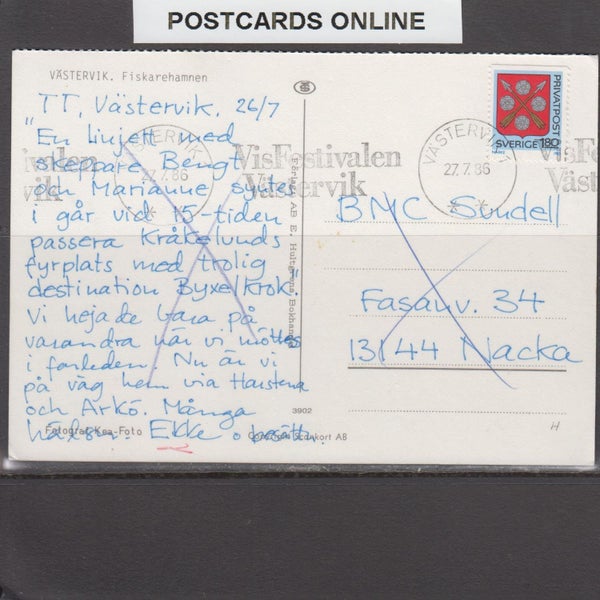 POSTCARDS ONLINE
VÄSTERVIK. Fiskarehamnen
TT, Västervik, 26/7
"En Linjett med
skeppare Bengt
och Marianne syntes
i går vid 15-tiden
passera Kråkelunds
fyrplats med trolig
destination Byxelkrok."
Vi hejade bara på
varandra när vi möttes
i farleden. Nu är vi
på väg hem via Harstena
och Arkö. Många
hälsn. Ekke o
Fotograf Kea-Foto
Förlag: AB E. Hultgrens Bokhandel
3902
Scankort AB
VisFestivalen
Västervik
VÄSTERVIK 1
27.7.86
VisFe
Väst
ivalen
vik
7.86
PRIVATPOST
SVERIGE 180
BMC Sundell
Fasanv. 34
13144 Nacka
H